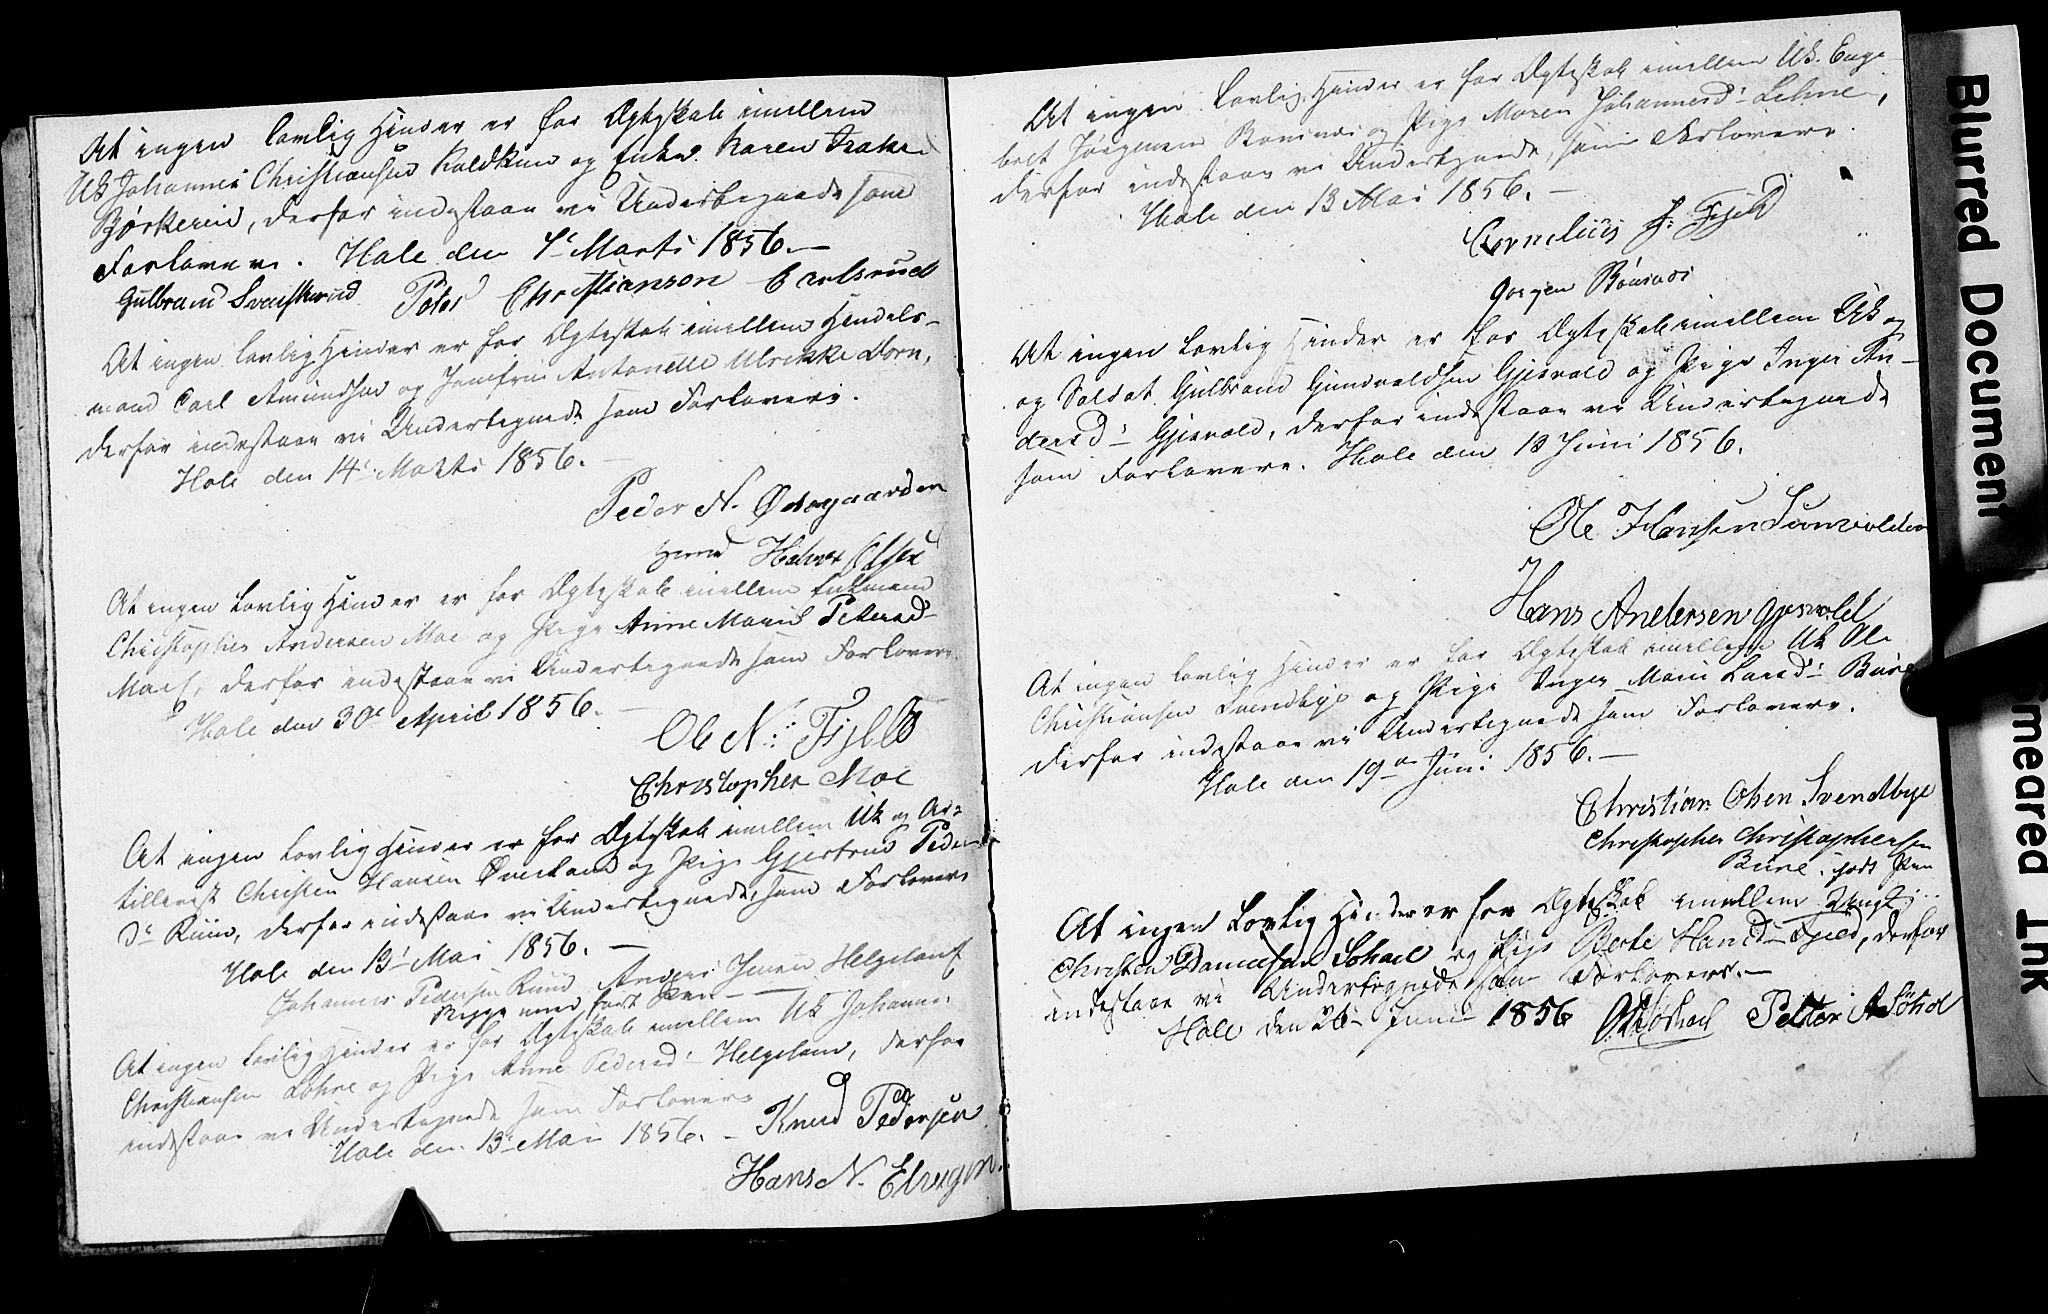 At ingen lovlig Hinder er for Ægteskab imellem
Uk Johannes Christiansen Koldkin og Enke Karen
Bjørkerein, derfor indestaae vi Undertegnede som
Forlovere. Hole den 1ste Marts 1856.
Gulbrand Peter Christianson
At ingen lovlig Hinder er for Ægteskab imellem Handels-
mand Carl Amundsen og Jomfrue Antonette Ulrikke Dorn,
derfor indestaae vi Undertegnede som Forlovere.
Hole den 14 Marts 1856.
Peder N. Østergaarden
Halvor Olsen
At ingen Lovlig Hinder er for Ægteskab imellem Enkemand
Christopher Andersen Moe og Pige Anne Marie Petersd
Moe, derfor indestaae vi Undertegnede som Forlovere
Hole den 30t April 1856.
Ole N: Fjeld
Christopher Moe
At ingen Lovlig Hinder er for Ægteskab imellem Uk og Ar-
tillerist Christen Hansen Øverland og Pige Gjertrud Peders
Dr Ruud, derfor indestaae vi Undertegnede som Forlovere
Hole den 13 Mai 1856.
Johannes Pedersen Ruud Anders Jensen Helgeland
med ført Pen
At ingen Lovlig Hinder er for Ægteskab imellem Uk Johannes
Christiansen Lohre og Pige Anne Pedersd Helgeland, derfor
indestaae vi Undertegnede som Forlovere
Hole den 13 Mai 1856. Knud Pedersen
Hans N. Elvigen.
At ingen Lovlig Hinder er for Ægteskab imellem Uk. Enge-
bret Jørgensen Bønsnæs og Pige Maren Johannesdr Lehne,
derfor indestaae vi Undertegnede, som Forlovere.
Hole den 13 Mai 1856.
Cornelius J: Fjeld
Jørgen Bönsnæs
At ingen Lovlig Hinder er for Ægteskab imellem Uk og
og Soldat Gulbrand Gundvaldsen Gjesvold og Pige Inger An-
dersdr Gjesvold, derfor indestaae vi Undertegnede
som Forlovere. Hole den 13 Juni 1856.
Ole Hansen Sunvolden
Hans Andersen Gjesvold
At ingen Lovlig Hinder er for Ægteskab imellem Uk Ole
Christiansen Svendbye og Pige Inger Marie Larsdr Bure
derfor indestaae vi Undertegnede som Forlovere.
Hole den 19de Juni 1856.
Christian Olsen Svendbye
Christopher Christophersen
Bure. ført Pen
At ingen Lovlig Hinder er for Ægteskab imellem Ungk
Christen Danielsen Sohoel og Pige Berte Hansd Fjeld, derfor
indestaae vi Undertegnede som Forlovere.
Hole den 26 Juni 1856 Petter A Söhol
Blurred Document
Smeared Ink